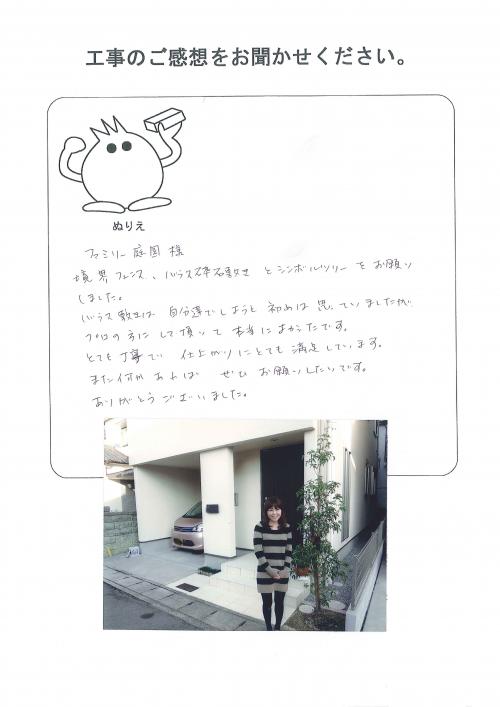 工事のご感想をお聞かせください。
ぬりえ
ファミリー庭園 様
境界フェンス、バラス砕石敷き とシンボルツリー を お願い
しました。
バラス敷きは 自分達でしようと 初めは 思っていましたが
プロの方に して頂いて 本当に よかったです。
とても丁寧で 仕上がりにとても 満足しています。
また何か あれば ぜひ お願いしたいです。
ありがとうございました。